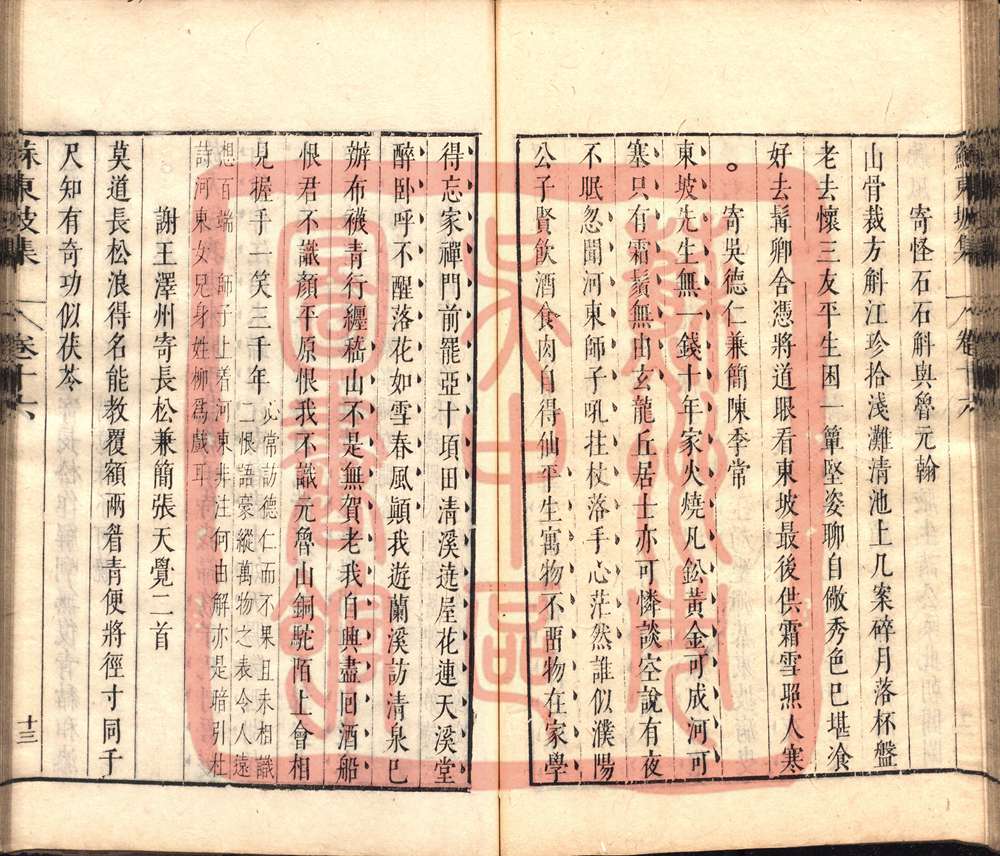 蘇東坡集 卷十六
寄怪石石斛與魯元翰
山骨裁方斛江珍拾淺灘清池上几案碎月落杯盤
老去懷三友平生困一簞堅姿聊自儆秀色已堪飡
好去髯卿舍憑將道眼看東坡最後供霜雪照人寒
寄吳德仁兼簡陳季常
東坡先生無一錢十年家火燒凡鉛黃金可成河可
塞只有霜鬚無由玄龍丘居士亦可憐談空說有夜
不眠忽聞河東師子吼拄杖落手心茫然誰似濮陽
公子賢飲酒食肉自得仙平生寓物不畱物在家學
得忘家禪門前罷亞十頃田清溪遶屋花連天溪堂
醉臥呼不醒落花如雪春風顚我遊蘭溪訪清泉已
辦布襪青行纏嵇山不是無賀老我自興盡回酒船
恨君不識顏平原恨我不識元魯山銅駝陌上會相
見握手一笑三千年
必常訪德仁而不果且未相識
二恨語豪縱萬物之表令人遠
想百端 師子上着河東非注何由解亦是暗引杜
詩河東女兒身姓柳爲戲耳
謝王澤州寄長松兼簡張天覺二首
莫道長松浪得名能教覆額兩眉青便將徑寸同千
尺知有奇功似茯苓
蘇東坡集 卷十六 十三